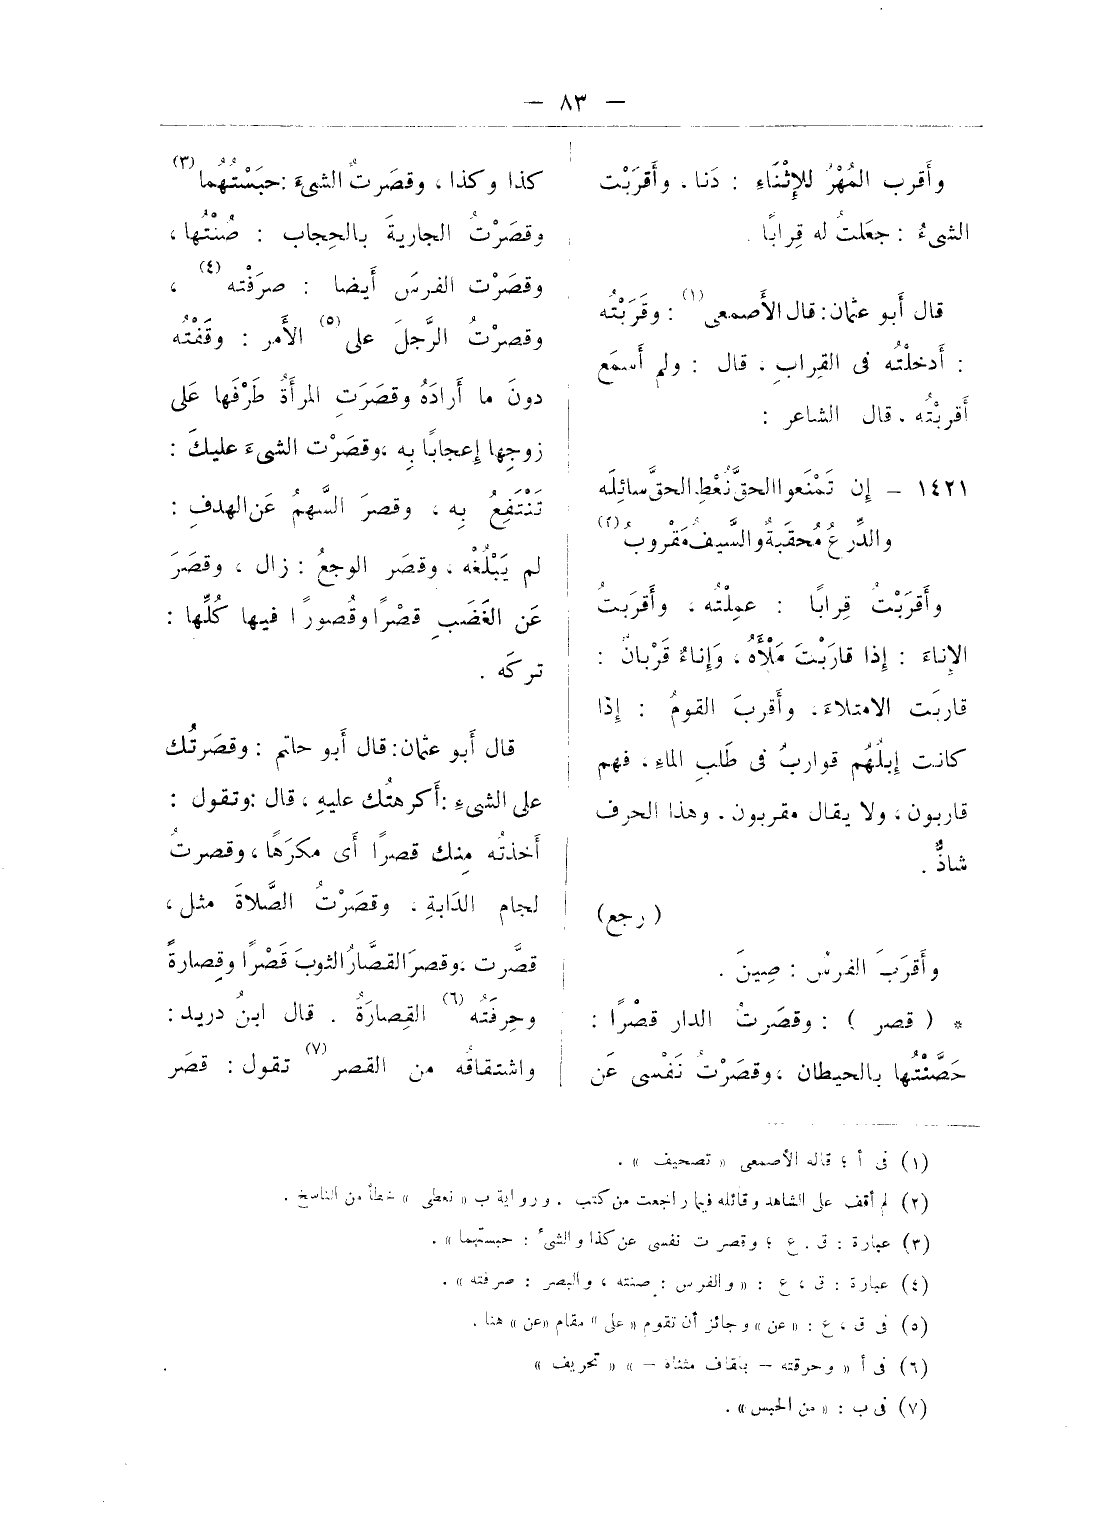 — ٨٣ —
وأَقرب المُهْرُ للإِثْنَاءِ : دَنا . وأَقرَبْت
الشىءُ : جعَلتُ له قِرابًا .
قال أَبو عثمان : قال الأَصمعى (١) : وقَرَبْتُه
: أَدخلْتُه فى القِرابِ ، قال : ولم أَسمَع
أَقربْتُه . قال الشاعر :
١٤٢١ – إِن تَمْنَعوا الحقَّ نُعْطِ الحقَّ سائِلَه
والدِّرعُ مُحقَبَةٌ والسَّيفُ مَقْروبُ (٢)
وأَقرَبْتُ قِرابًا : عمِلْتُه ، وأَقرَبتُ
الإِناءَ : إِذا قارَبْتَ مَلْأَهُ ، وَإِناءٌ قَرْبانٌ :
قاربَت الامتلاءَ ، وأَقربَ القومُ : إِذَا
كانت إِبلُهُم قواربُ فى طَلَبِ الماءِ ، فهم
قاربون ، ولا يقال مقربون . وهذا الحرف
شاذٌّ .
( رجع )
وأَقرَبَ الفرسُ : صِينَ .
* ( قصر ) : وقصَرتُ الدار قصْرًا :
حَصَّنْتُها بالحيطان ، وقصَرْتُ نَفْسى عَن
كذا وكذا ، وقصَرتُ الشىءَ : حبَسْتُهُما (٣)
وقصَرْتُ الجاريةَ بالحِجاب : صُنْتُها ،
وقصَرْت الفرسَ أَيضا : صرَفْته (٤) ،
وقصرْتُ الرَّجلَ على (٥) الأَمر : وقَفْتُه
دونَ ما أَرادَهُ وقصَرَتِ المرأَةُ طَرْفَها عَلى
زوجِها إِعجابًا بِه ، وقصَرْت الشىءَ عليكَ :
تَنْتَفِعُ بِه ، وقصرَ السَّهمُ عَن الهدفِ :
لم يَبْلُغْه ، وقصَر الوجعُ : زال ، وقصَرَ
عَن الغَضَبِ قصْرًا وقُصورًا فيها كُلِّها :
تركَه .
قال أَبو عثمان : قال أَبو حاتم : وقصَرتُك
على الشىءِ : أَكرهتُك عليهِ ، قال : وتقول :
أَخذتُه مِنك قصرًا أَى مكرَهًا ، وقصرتُ
لجام الدَابةِ ، وقصَرْتُ الصَّلاةَ مثل ،
قصَّرت ، وقصرَ القصَّارُ الثوبَ قَصْرًا وقِصارةً
وحِرفَتُه (٦) القِصارَةُ . قال ابنُ دريد :
واشتقاقُه من القصر (٧) تقول : قصَر
(١) فى أ ؛ قاله الأصمعى « تصحيف » .
(٢) لم أقف على الشاهد وقائله فيما راجعت من كتب . ورواية ب « نعطى » خطأ من الناسخ .
(٣) عبارة : ق . ع ؛ وقصرت نفسى عن كذا والشىء : حبستهما » .
(٤) عبارة : ق ، ع : « والفرس : صنته ، والبصر : صرفته » .
(٥) فى ق ، ع : « عن » وجائز أن تقوم « على » مقام « عن » هنا .
(٦) فى أ « وحرقته – بالقاف مثناة – » « تحريف »
(٧) فى ب : « من الحبس » .